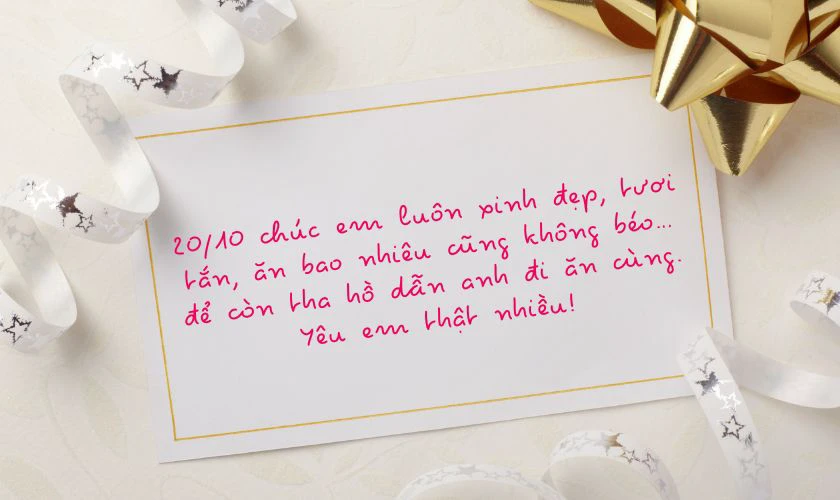 20/10 chúc em luôn xinh đẹp, tươi
tắn, ăn bao nhiêu cũng không béo...
để còn tha hồ dẫn anh đi ăn cùng.
Yêu em thật nhiều!